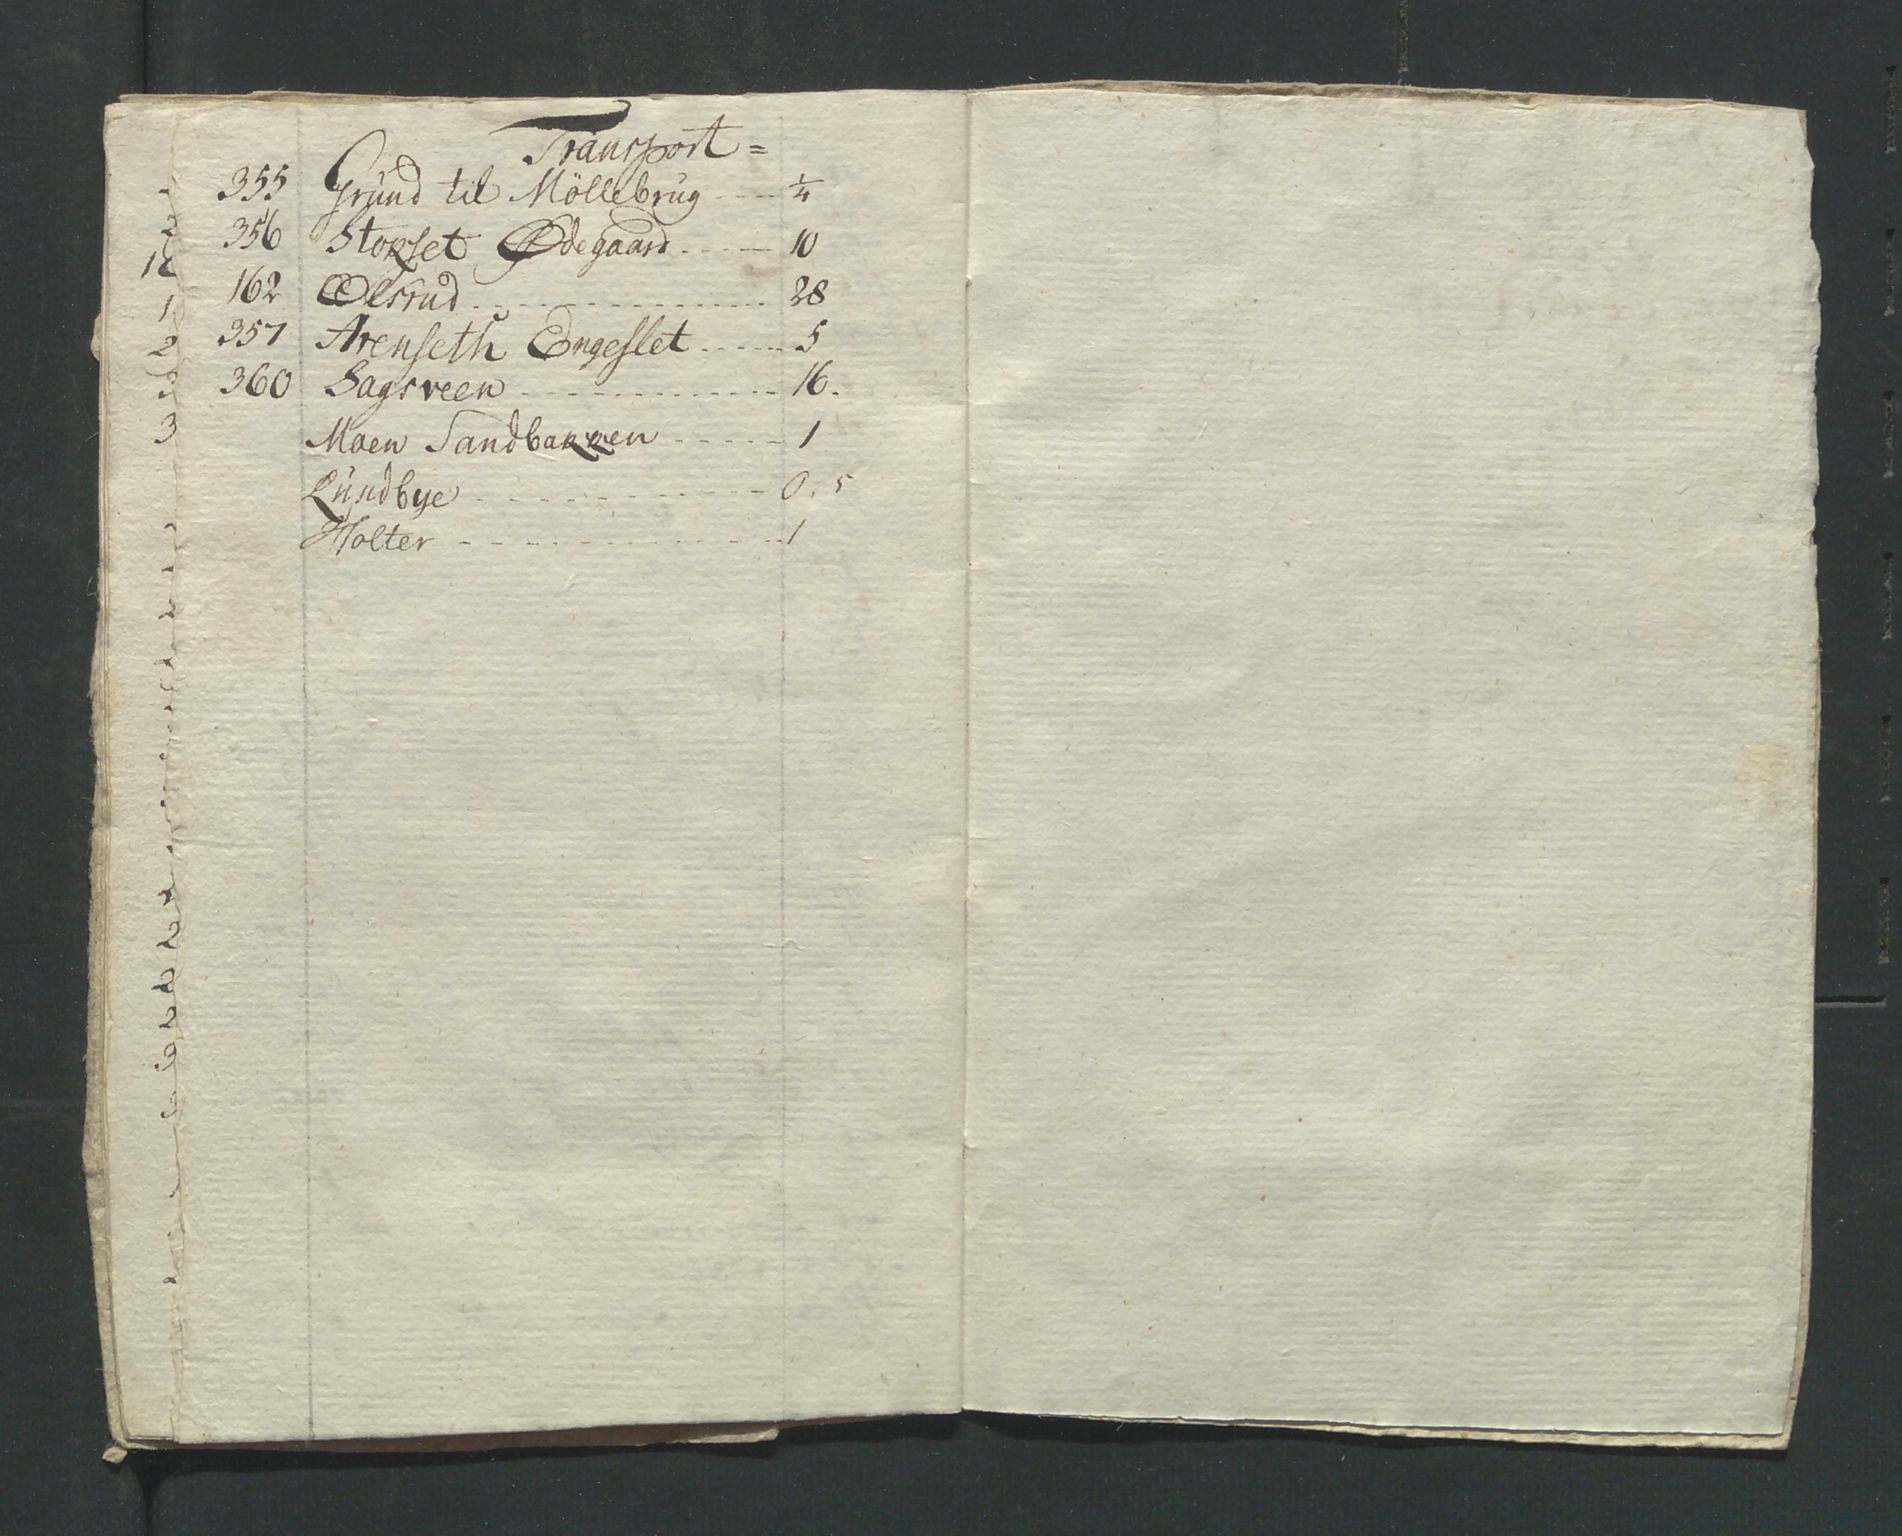 Transport =
355 Grund til Möllebrug - - - 1/4
356 Stokset Ødegaard - - - - - 10
162 Ølsrud - - - - - - - - - - - - 28
357 Arenseth Engeslet - - - - - 5
360 Sagsveen - - - - - - - - - - - 16.
Moen Sandbakken - - - - - 1
Lundbye - - - - - - - - - - - - 0. 5
Holter - - - - - - - - - - - - - 1